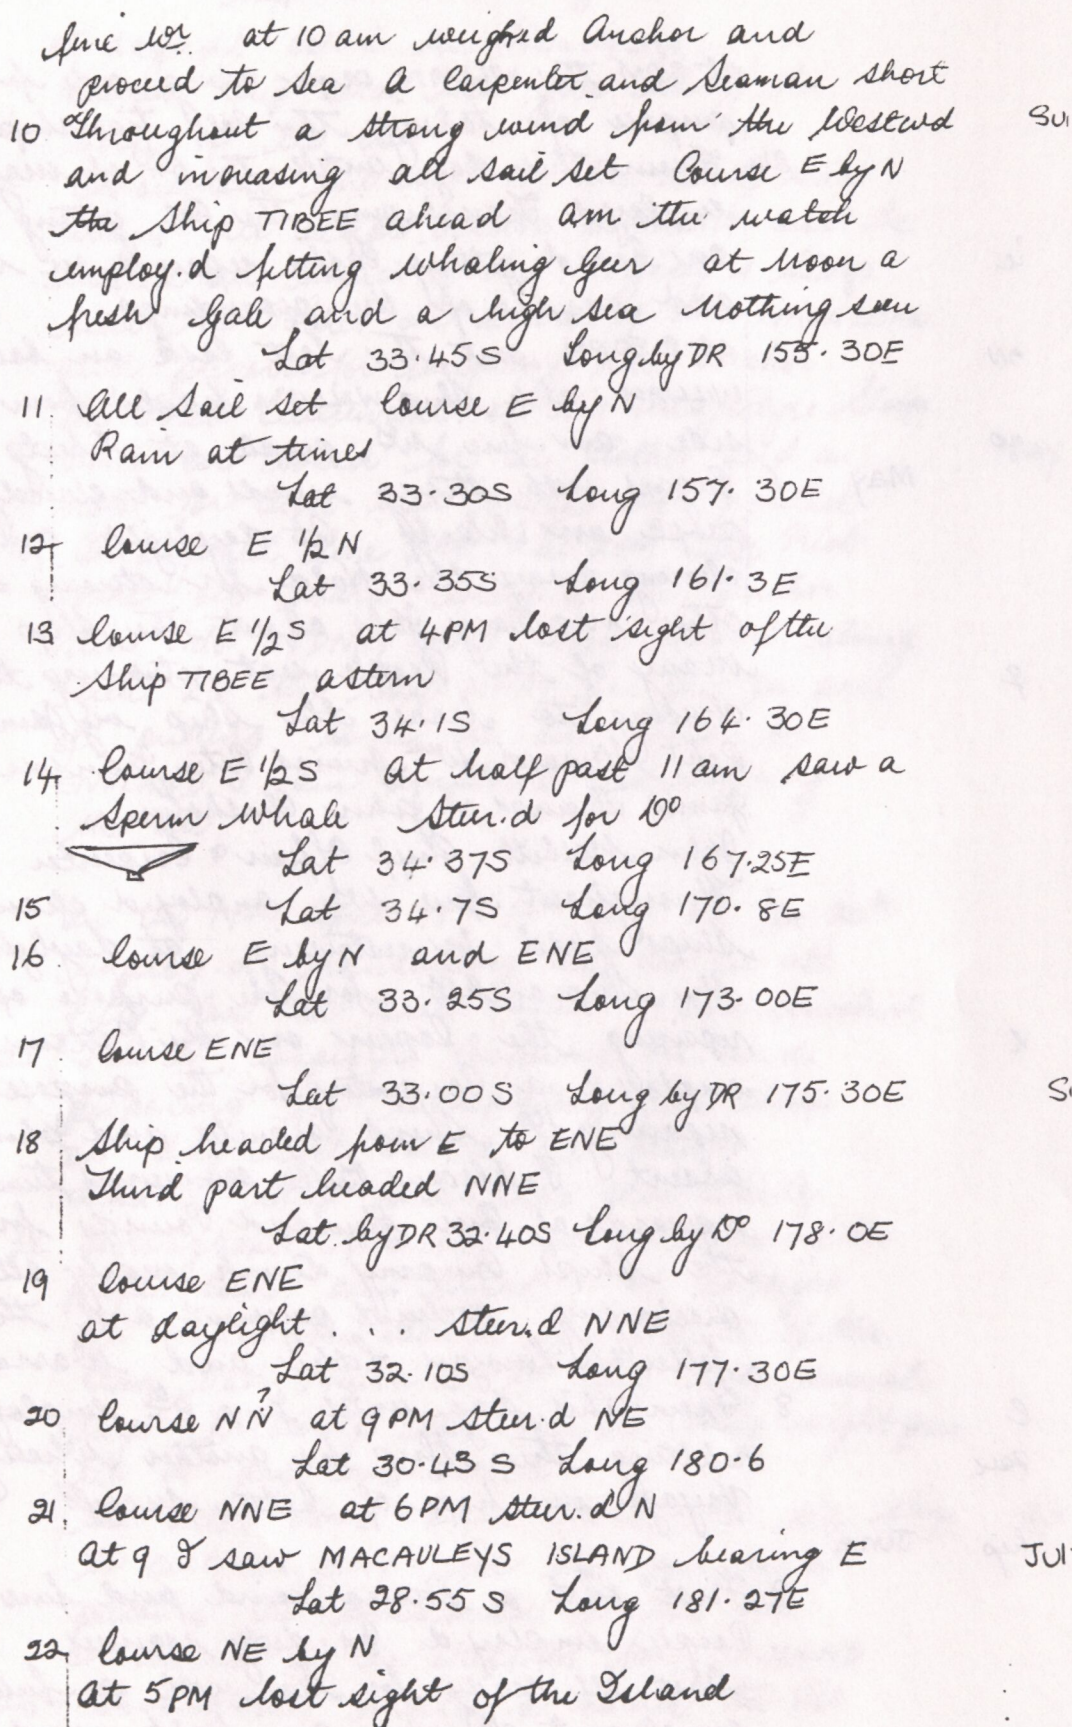 fine Wr. at 10 am weighed Anchor and
proceed to Sea A Carpenter and Seaman short
10 Throughout a strong wind from the Westwd
and increasing all sail set Course E by N
the Ship TIBEE ahead am the watch
employ.d fitting Whaling Geer at Noon a
fresh Gale and a high sea Nothing seen
Lat 33.45S Long by DR 155.30E
11. All Sail set Course E by N
Rain at times
Lat 33.30S Long 157.30E
12 Course E 1/2 N
Lat 33.35S Long 161.3E
13 Course E 1/2 S at 4PM lost sight of the
Ship TIBEE astern
Lat 34.1S Long 164.30E
14 Course E 1/2 S at half past 11 am saw a
Sperm Whale Steer.d for Do
Lat 34.37S Long 167.25E
15 Lat 34.7S Long 170.8E
16. Course E by N and ENE
Lat 33.25S Long 173.00E
17. Course ENE
Lat 33.00S Long by DR 175.30E
18 Ship headed from E to ENE
Third part headed NNE
Lat. by DR 32.40S Long by Do 178.0E
19 Course ENE
at daylight . . . steer.d NNE
Lat 32.10S Long 177.30E
?
20 Course NN at 9PM steer.d NE
Lat 30.43 S Long 180.6
21. Course NNE at 6PM steer.d N
At 9 saw MACAULEYS ISLAND bearing E
Lat 28.55 S Long 181.27E
22. Course NE by N
At 5PM lost sight of the Island